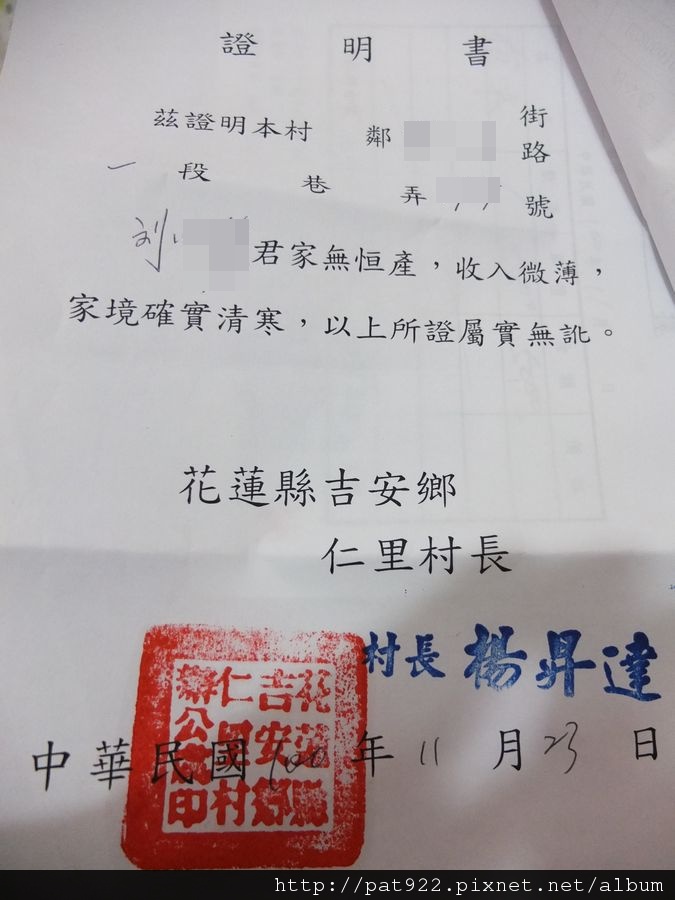 證 明 書
茲證明本村 鄰 街
路
一 段 巷 弄 號
刘 君家無恒產，收入微薄，
家境確實清寒，以上所證屬實無訛。
花蓮縣吉安鄉
仁里村長
村長 楊昇達
花蓮縣
吉安鄉
仁里村
辦公處印
中華民國 100 年 11 月 23 日
http://pat922.pixnet.net/album